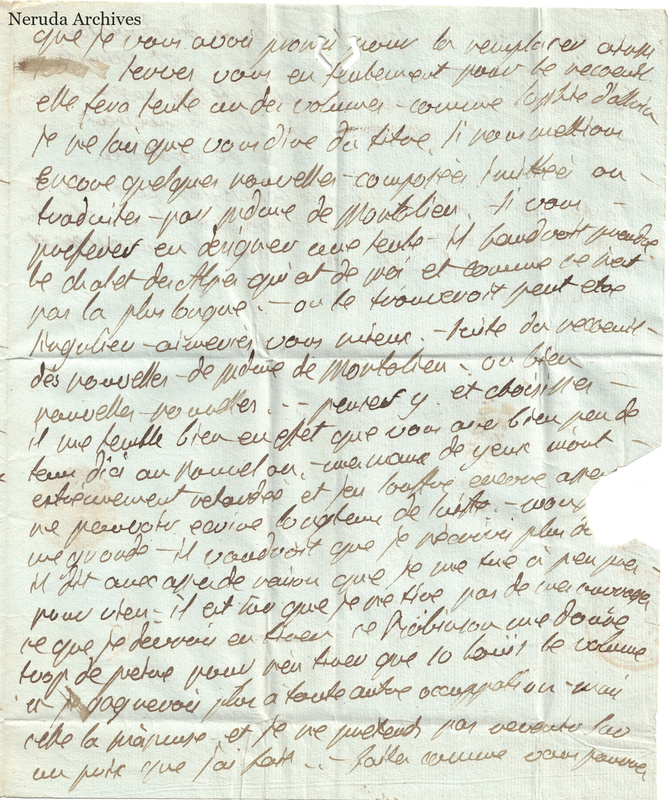 Neruda Archives
que je vous avois promis pour la remplacer aussi
servés vous en seulement pour le recoeuil
elle fera seule un des volumes - comme Sophie d'alwin
je ne sais que vous dire du titre, si nous mettions
Encore quelques nouvelles - composées imittées ou
traduites - par mdme de Montolieu. Si vous -
preferez en designer une seule - il faudroit prendre
le chalet des Alpes qui est de moi et comme ce n'est
pas la plus longue. - on le trouveroit peut etre
singulier - aimeriez vous mieux. - Suite du recoeuil -
des nouvelles - de mdme de Montolieu. ou bien
nouvelles - nouvelles. - pensez y et choisisses -
il me semble bien en effet que vous avez bien peu de
tems dici au nouvel an. - mes maux de yeux m'ont -
extrèmement retardée et j'en souffre encore assez
ne pouvoir ecrire longtems de suite. - mon
me gronde - il voudroit que je n'écrivis plus
il dit avec assez de raison que je me tue à peu près -
pour rien - il est sûr que je ne tire pas de mes ouvrages
ce que je devrois en tirer ce Robinson me donne
trop de peine pour n'en tirer que 10 Louis le volume
et je gagnerois plus a toute autre occuppation - mais
celle la m'amuse - et je ne pretends pas revenir sur
un prix que j'ai fait. - faites comme vous pourrez